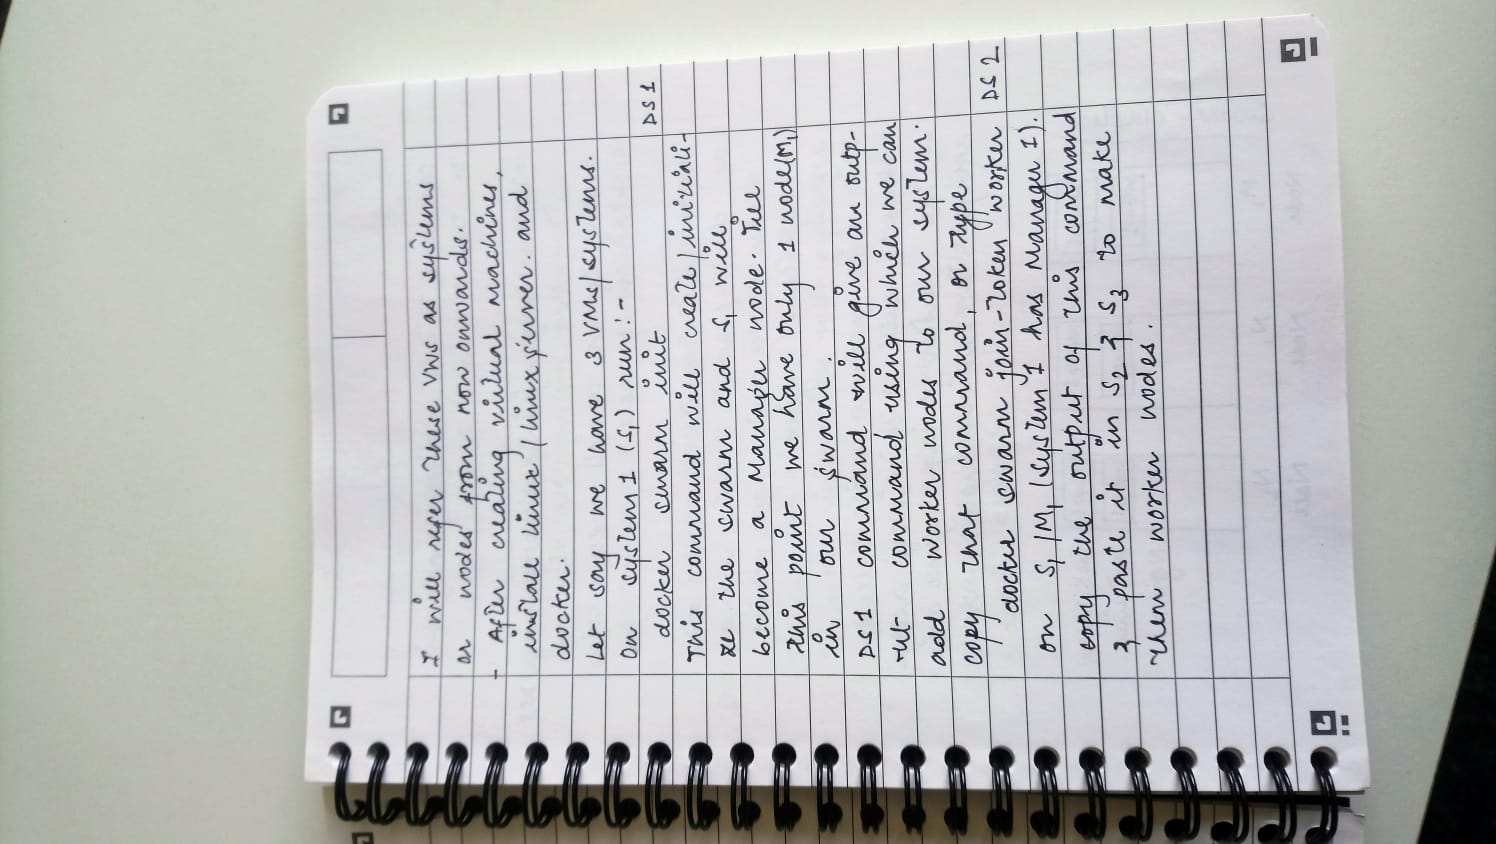 I will refer these VMs as systems
or nodes from now onwards.
- After creating virtual machines,
install linux / linux server. and
docker.
Let say we have 3 VMs/systems.
On system 1 (S1) run :-
docker swarm init DS1
This command will create/initiali-
ze the swarm and S1 will
become a Manager node. Till
this point we have only 1 node(M1)
in our swarm.
DS1 command will give an outp-
ut command using which we can
add worker nodes to our system.
copy that command, or type
docker swarm join-token worker DS2
on S1/M1 (System 1 has Manager 1).
copy the output of this command
& paste it in S2 & S3 to make
them worker nodes.